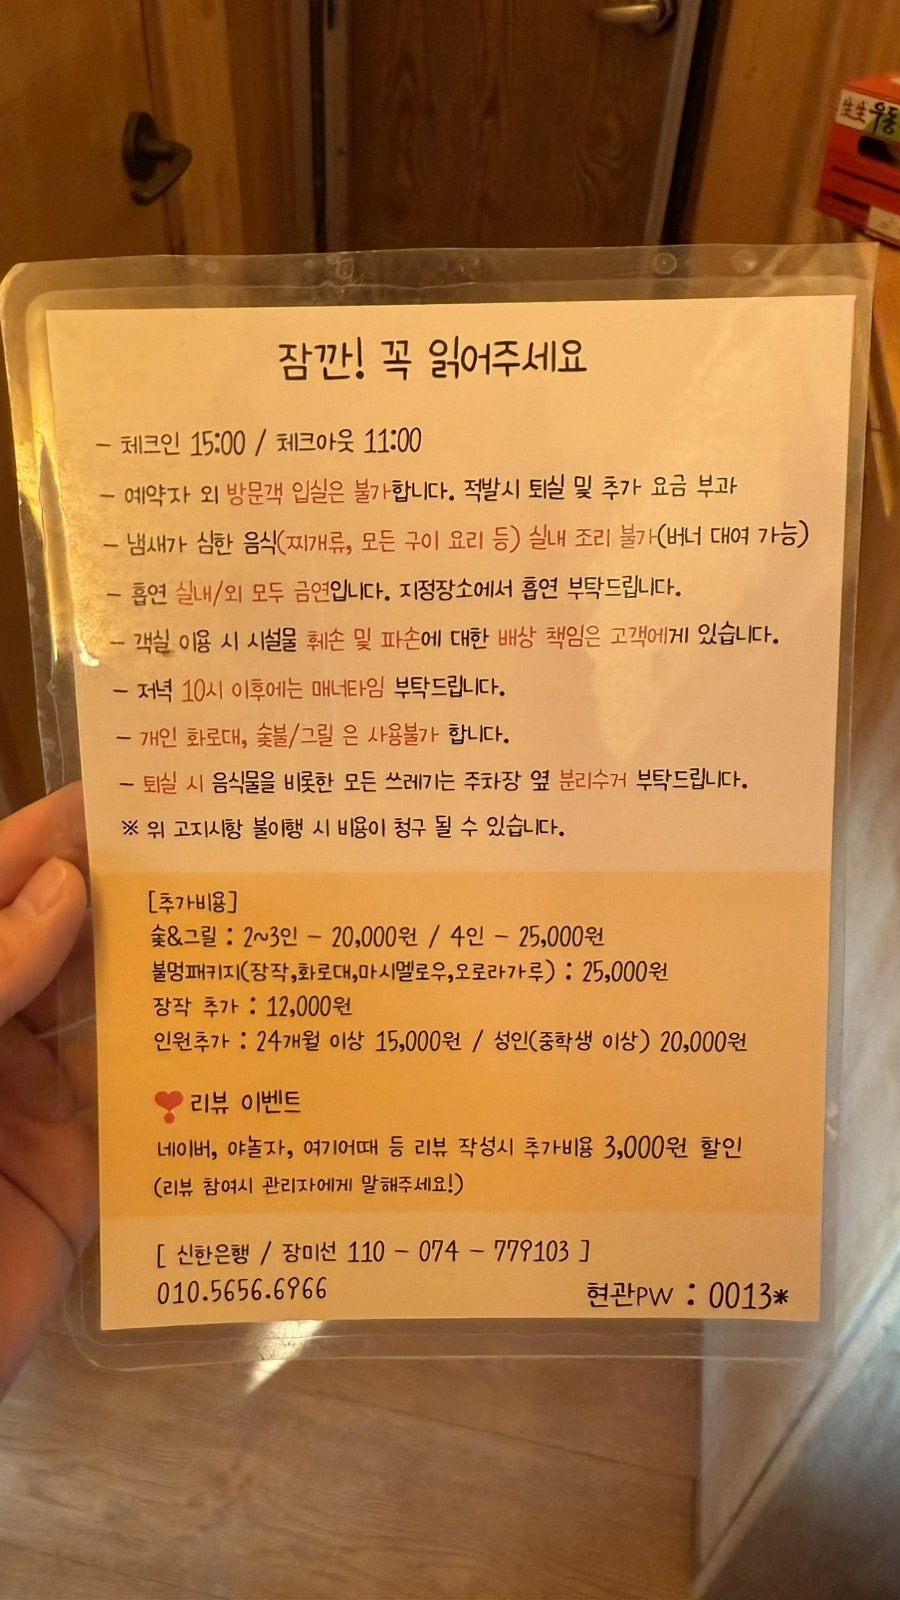 生生우동
잠깐! 꼭 읽어주세요
- 체크인 15:00 / 체크아웃 11:00
- 예약자 외 방문객 입실은 불가합니다. 적발시 퇴실 및 추가 요금 부과
- 냄새가 심한 음식(찌개류, 모든 구이 요리 등) 실내 조리 불가(버너 대여 가능)
- 흡연 실내/외 모두 금연입니다. 지정장소에서 흡연 부탁드립니다.
- 객실 이용 시 시설물 훼손 및 파손에 대한 배상 책임은 고객에게 있습니다.
- 저녁 10시 이후에는 매너타임 부탁드립니다.
- 개인 화로대, 숯불/그릴 은 사용불가 합니다.
- 퇴실 시 음식물을 비롯한 모든 쓰레기는 주차장 옆 분리수거 부탁드립니다.
※ 위 고지시항 불이행 시 비용이 청구 될 수 있습니다.
[추가비용]
숯&그릴 : 2~3인 - 20,000원 / 4인 - 25,000원
불멍패키지(장작,화로대,마시멜로우,오로라가루) : 25,000원
장작 추가 : 12,000원
인원추가 : 24개월 이상 15,000원 / 성인(중학생 이상) 20,000원
❣ 리뷰 이벤트
네이버, 야놀자, 여기어때 등 리뷰 작성시 추가비용 3,000원 할인
(리뷰 참여시 관리자에게 말해주세요!)
[ 신한은행 / 장미선 110 - 074 - 779103 ]
010.5656.6966
현관PW : 0013*